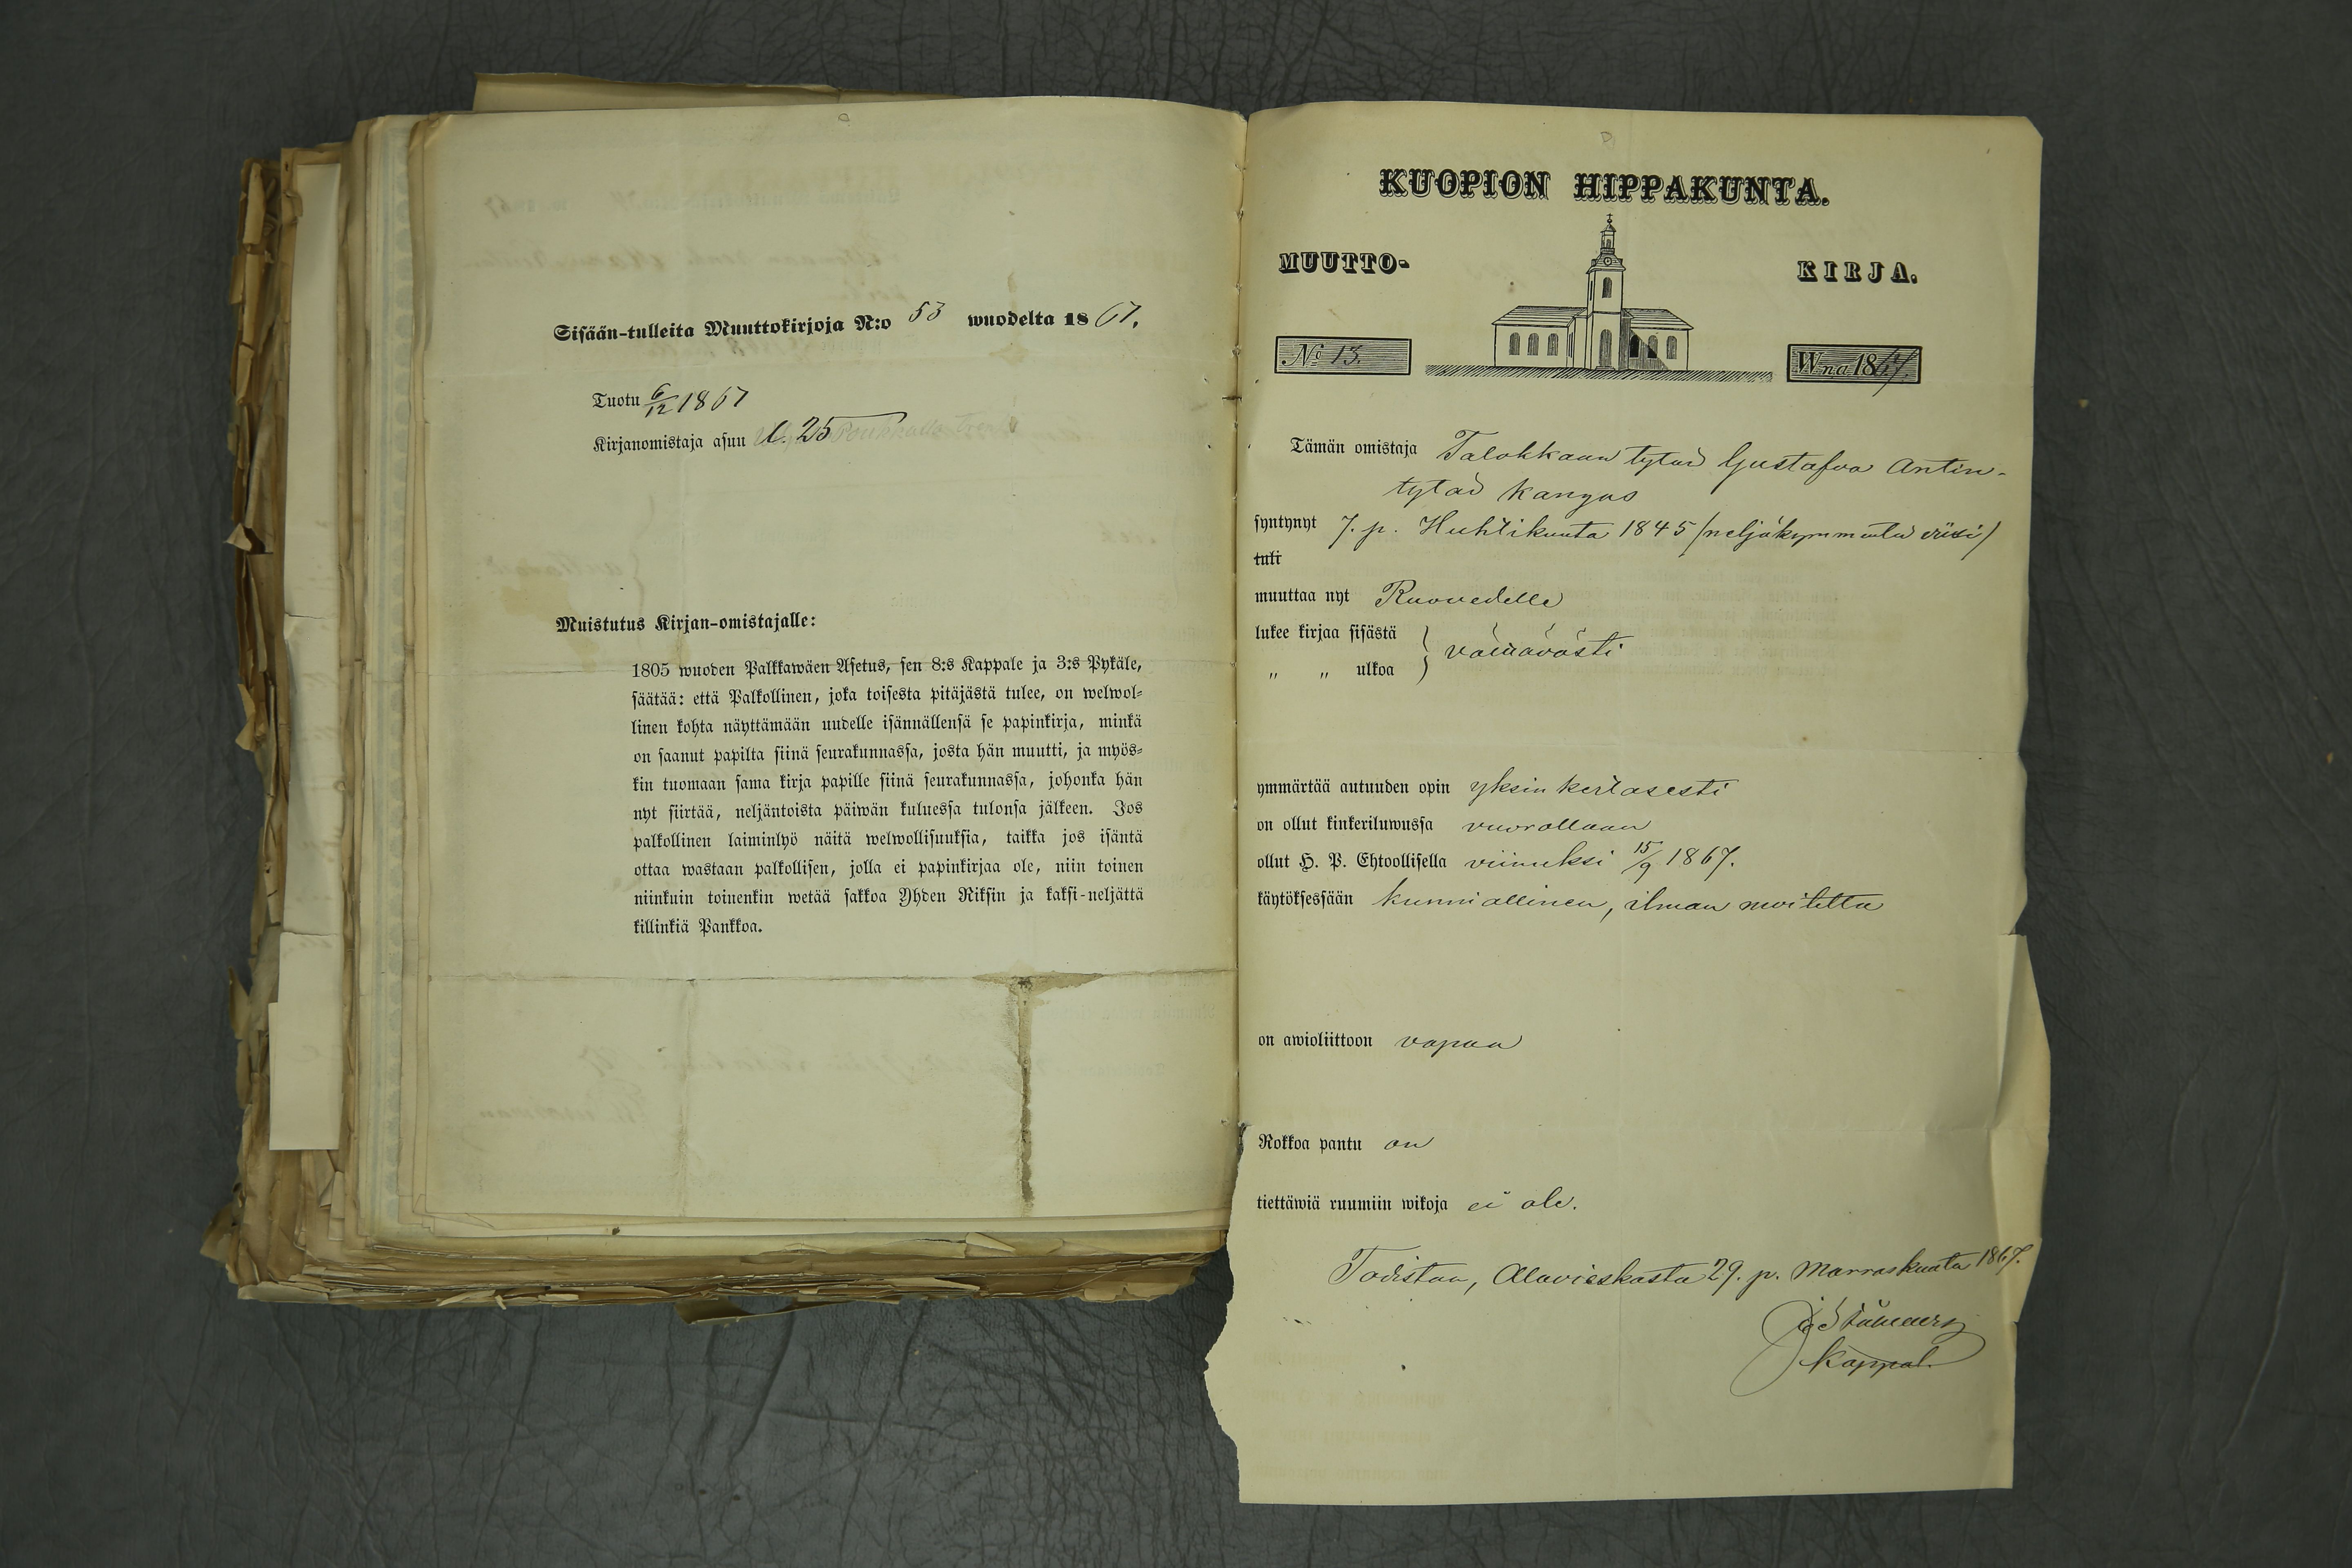 Sisään-tulleita Muuttokirjoja N:o 53 wuodelta 1867.
Tuotu 6/12 1867
Kirjanomistaja asuu 25
Muistutus Kirjan-omistajalle:
1805 wuoden Palkkawäen Asetus, sen 8:s Kappale ja 3:s Pykäle,
säätää: että Palkollinen, joka toisesta pitäjästä tulee, on welwol-
linen kohta näyttämään uudelle isännällensä se papinkirja, minkä
on saanut papilta siinä seurakunnassa, josta hän muutti, ja myös-
kin tuomaan sama kirja papille siinä seurakunnassa, johonka hän
nyt siirtää, neljäntoista päiwän kuluessa tulonsa jälkeen. Jos
palkollinen laiminlyö näitä welwollisuuksia, taikka jos isäntä
ottaa wastaan palkollisen, jolla ei papinkirjaa ole, niin toinen
niinkuin toinenkin wetää sakkoa Yhden Riksin ja kaksi-neljättä
killinkiä Pankkoa.
KUOPION HIPPAKUNTA.
MUUTTO- KIRJA.
No 13. Wna 1867.
Tämän omistaja Talokkaan tytär Gustafva Antin-
tytär Kangas
syntynyt 7. p. Huhtikuuta 1845 /neljäkymmentä viisi/
tuli
muuttaa nyt Ruovedelle
lukee kirjaa sisästä
" " ulkoa } välttävästi
ymmärtää autuuden opin yksinkertasesti
on ollut kinkeriluwussa vuorollaan
ollut H. P. Ehtoollisella viimeksi 15/9 1867.
käytöksessään kunniallinen, ilman moitetta
on awioliittoon vapaa
Rokkoa pantu on
tiettäwiä ruumiin wikoja ei ole.
Todistaa, Alavieskasta 29. p. Marraskuuta 1867.
Kappal.